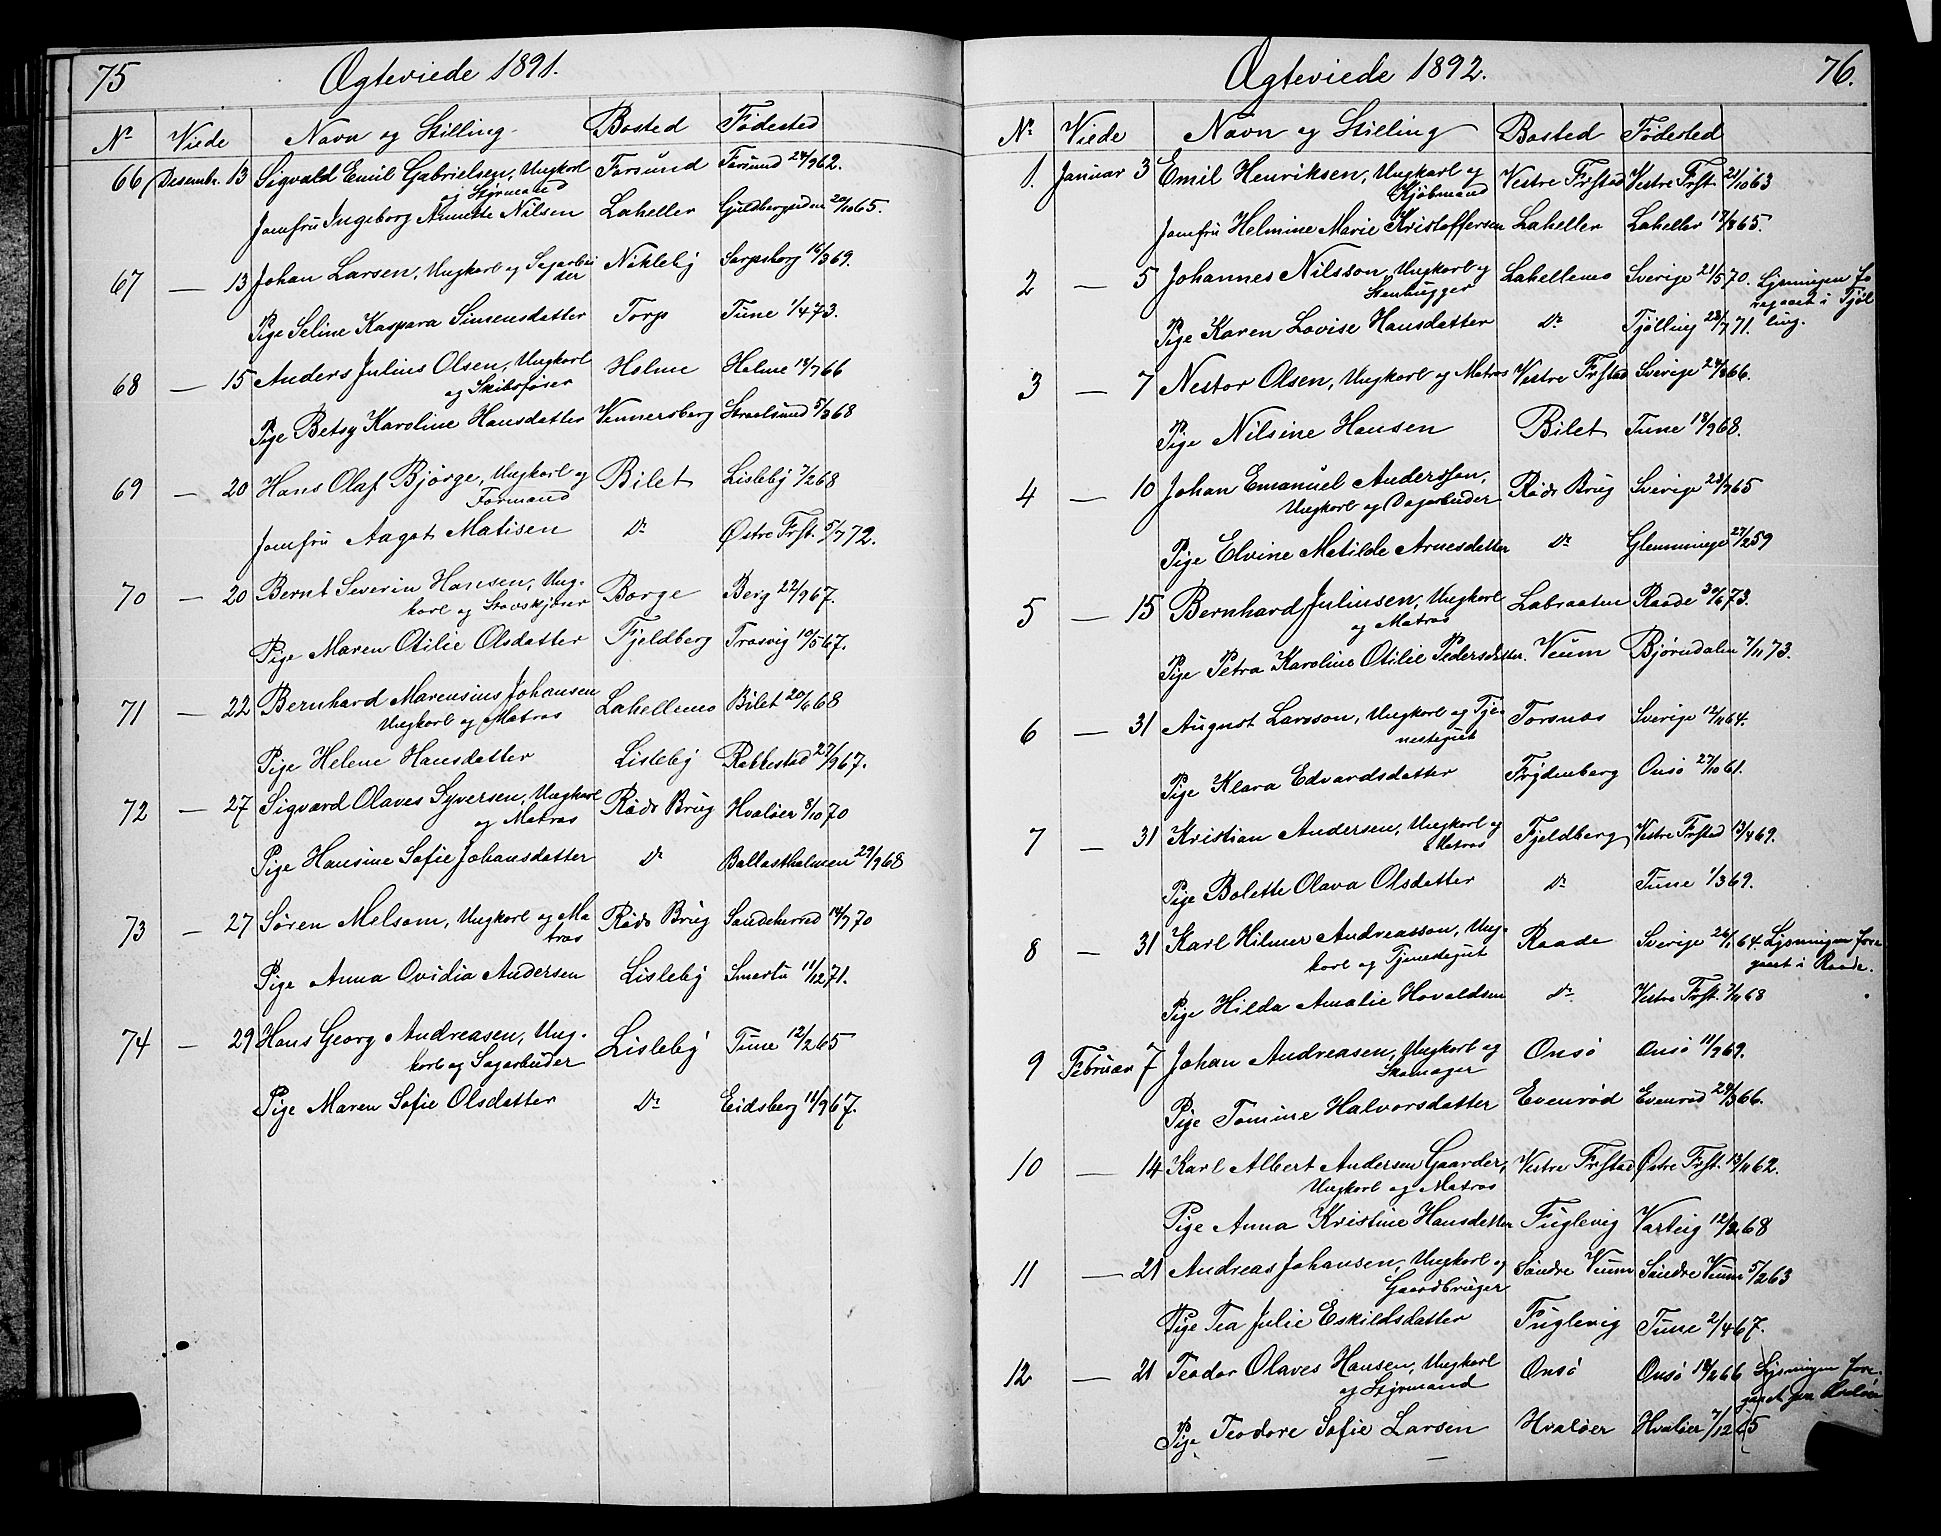 75 Ægteviede 1891.
Nr Viede Navn og Stilling Bosted Fødested
66 Desembr. 13 Sigvald Emil Gabrielsen, Ungkarl Farsund Farsund 24/9 62.
og Styrmand
Jomfru Ingeborg Annette Nilsen Lahellen Guldbergsiden 29/10 65.
67 — 13 Johan Larsen, Ungkarl og Sagarbei Nökleby Sarpsborg 16/3 69.
der
Pige Seline Kaspara Simensdatter Torp Tune 1/4 73.
68 — 15 Anders Julius Olsen, Ungkarl Holme Holme 18/7 66
og Skibsfører
Pige Betsy Karoline Hansdatter Vennersberg Straalsund 5/3 68
69 — 20 Hans Olaf Bjørge, Ungkarl og Bilet Lisleby 7/2 68
Formand
Jomfru Aagot Matisen Do Østre Frst. 5/7 72.
70 — 20 Bernt Severin Hansen, Ung- Borge Berg 22/9 67.
karl og Stavskjører
Pige Maren Otilie Olsdatter Fjeldberg Trosvig 10/5 67.
71 — 22 Bernhard Marensius Johansen Lahellemo Bilet 20/6 68
Ungkarl og Matros
Pige Helene Hansdatter Lisleby Rakkestad 27/9 67.
72 — 27 Sigvard Olaves Syversen, Ungkarl Røds Brug Hvaløer 8/10 70
og Matros
Pige Hansine Sofie Johansdatter Do Ballastholmen 29/9 68
73 — 27 Søren Melsom, Ungkarl og Ma Røds Brug Sandeherred 14/7 70
tros
Pige Anna Ovidia Andersen Lisleby Smertu 11/12 71.
74 — 29 Hans Georg Andreasen, Ung- Lisleby Tune 12/2 65
karl og Sagarbeider
Pige Maren Sofie Olsdatter Do Eidsberg 18/9 67.
Ægteviede 1892. 76.
Nr Viede Navn og Stilling Bosted Fødested
1. Januar 3 Emil Henriksen, Ungkarl og Vestre Frstad Vestre Frst. 21/10 63
Kjøbmand
Jomfru Helmine Marie Kristoffersen Lahellen Lahellen 17/8 65.
2 — 5 Johannes Nilsson, Ungkarl og Lahellemo Sverige 21/5 70. Lysningen fo
Stenhugger regaaet i Tjöl
Pige Karen Lovise Hansdatter Do Tjølling 28/7 71. ling.
3 — 7 Nestor Olsen, Ungkarl og Matros Vestre Frstad Sverige 24/8 66.
Pige Nilsine Hansen Bilet Tune 18/9 68.
4 — 10 Johan Emanuel Andersson, Røds Brug Sverige 23/7 65
Ungkarl og Dagarbeider
Pige Elvine Matilde Arnesdatter Do Glemminge 27/2 59
5 — 15 Bernhard Juliusen, Ungkarl Labraaten Raade 30/6 73.
og Matros
Pige Petra Karoline Otilie Pedersdatter. Veum Bjørndalen 7/11 73.
6 — 31 August Larsson, Ungkarl og Tje- Torsnæs Sverige 12/11 64.
nestegut
Pige Klara Edvardsdatter Frydenberg Onsö 27/10 61.
7 — 31 Kristian Andersen, Ungkarl og Fjeldberg Vestre Frstad 13/4 69.
Matros
Pige Bolette Olava Olsdatter Do Tune 1/3 69.
8 — 31 Karl Hilmer Andreasson, Ung- Raade Sverige 26/1 64 Lysningen fore
karl og Tjenestegut gaaet i Raade.
Pige Hilda Amalie Hovaldsen Do Vestre Frst. 7/11 68
9 Februar 7 Johan Andreasen, Ungkarl og Onsö Onsö 11/9 69.
Skomager
Pige Tomine Halvorsdatter Evenröd Evenröd 28/3 66.
10 — 14 Karl Albert Andersen Gaarder, Vestre Frstad Østre Frst. 13/11 62.
Ungkarl og Matros
Pige Anna Kristine Hansdatter Fuglevig Varteig 12/2 68
11 — 21 Andreas Johansen, Ungkarl og Søndre Veum Søndre Veum 5/2 63
Gaardbruger
Pige Tea Julie Eskildsdatter Fuglevig Tune 2/4 67.
12 — 21 Teodor Olaves Hansen, Ungkarl Onsö Onsö 18/2 66 Lysningen fore-
og Styrmand gaaet paa Hvaløer
Pige Teodore Sofie Larsen Hvaløer Hvaløer 7/12 65